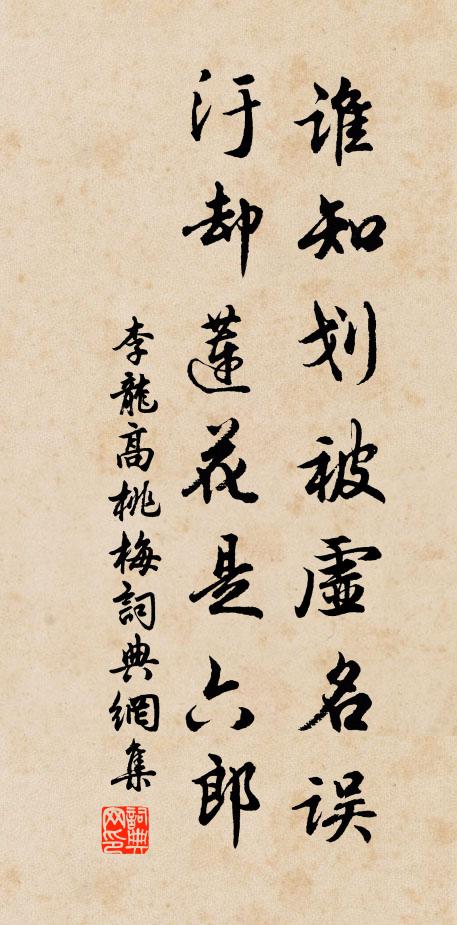 谁知划被虚名误
汙却莲花是六郎
李龍高桃梅詞典網集
詞典网印